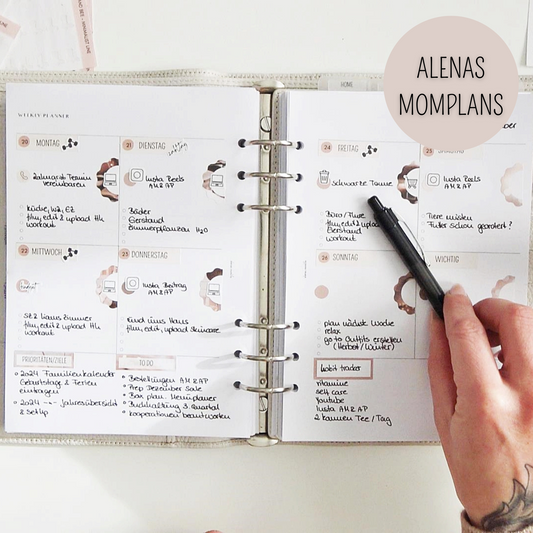 ALENAS
MOMPLANS
HOME
WEEKLY PLANNER
20 MONTAG
Zahnarzt Termin
vereinbaren
Küche, WZ, EZ
film, edit & upload
workout
21 DIENSTAG
Insta Reels
AM & AP
Bäder
Gerstand
Zimmerpflanzen H2O
22 MITTWOCH
SZ & Livs Zimmer
film, edit & upload
workout
23 DONNERSTAG
Insta Beitrag
AM & AP
rund ums Haus
film, edit, upload
PRIORITÄTEN/ZIELE
2024 Familienkalender
Geburtstage & Ferien
eintragen
2024 Jahresübersicht
& Setup
TO DO
Bestellungen AM & AP
Prep Dezember Sale
Box plan. Menüplaner
Buchhaltung 3. Quartal
Kooperationen beantworten
24 FREITAG
schwarze Tonne
Büro / Flure
film, edit & upload
Gerstand
workout
25
Insta Reels
AM & AP
Tiere misten
Futter schon geordert?
26 SONNTAG
plan nächste Woche
relax
go to Outfits erstellen
(Herbst / Winter)
WICHTIG
habit tracker
vitamine
self care
Youtube
Insta AM & AP
2 Kannen Tee / Tag